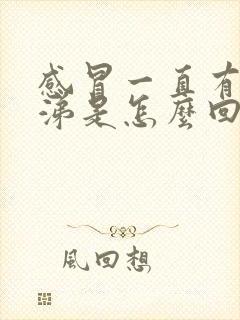 感冒一直有
涕是怎麼回
風回想